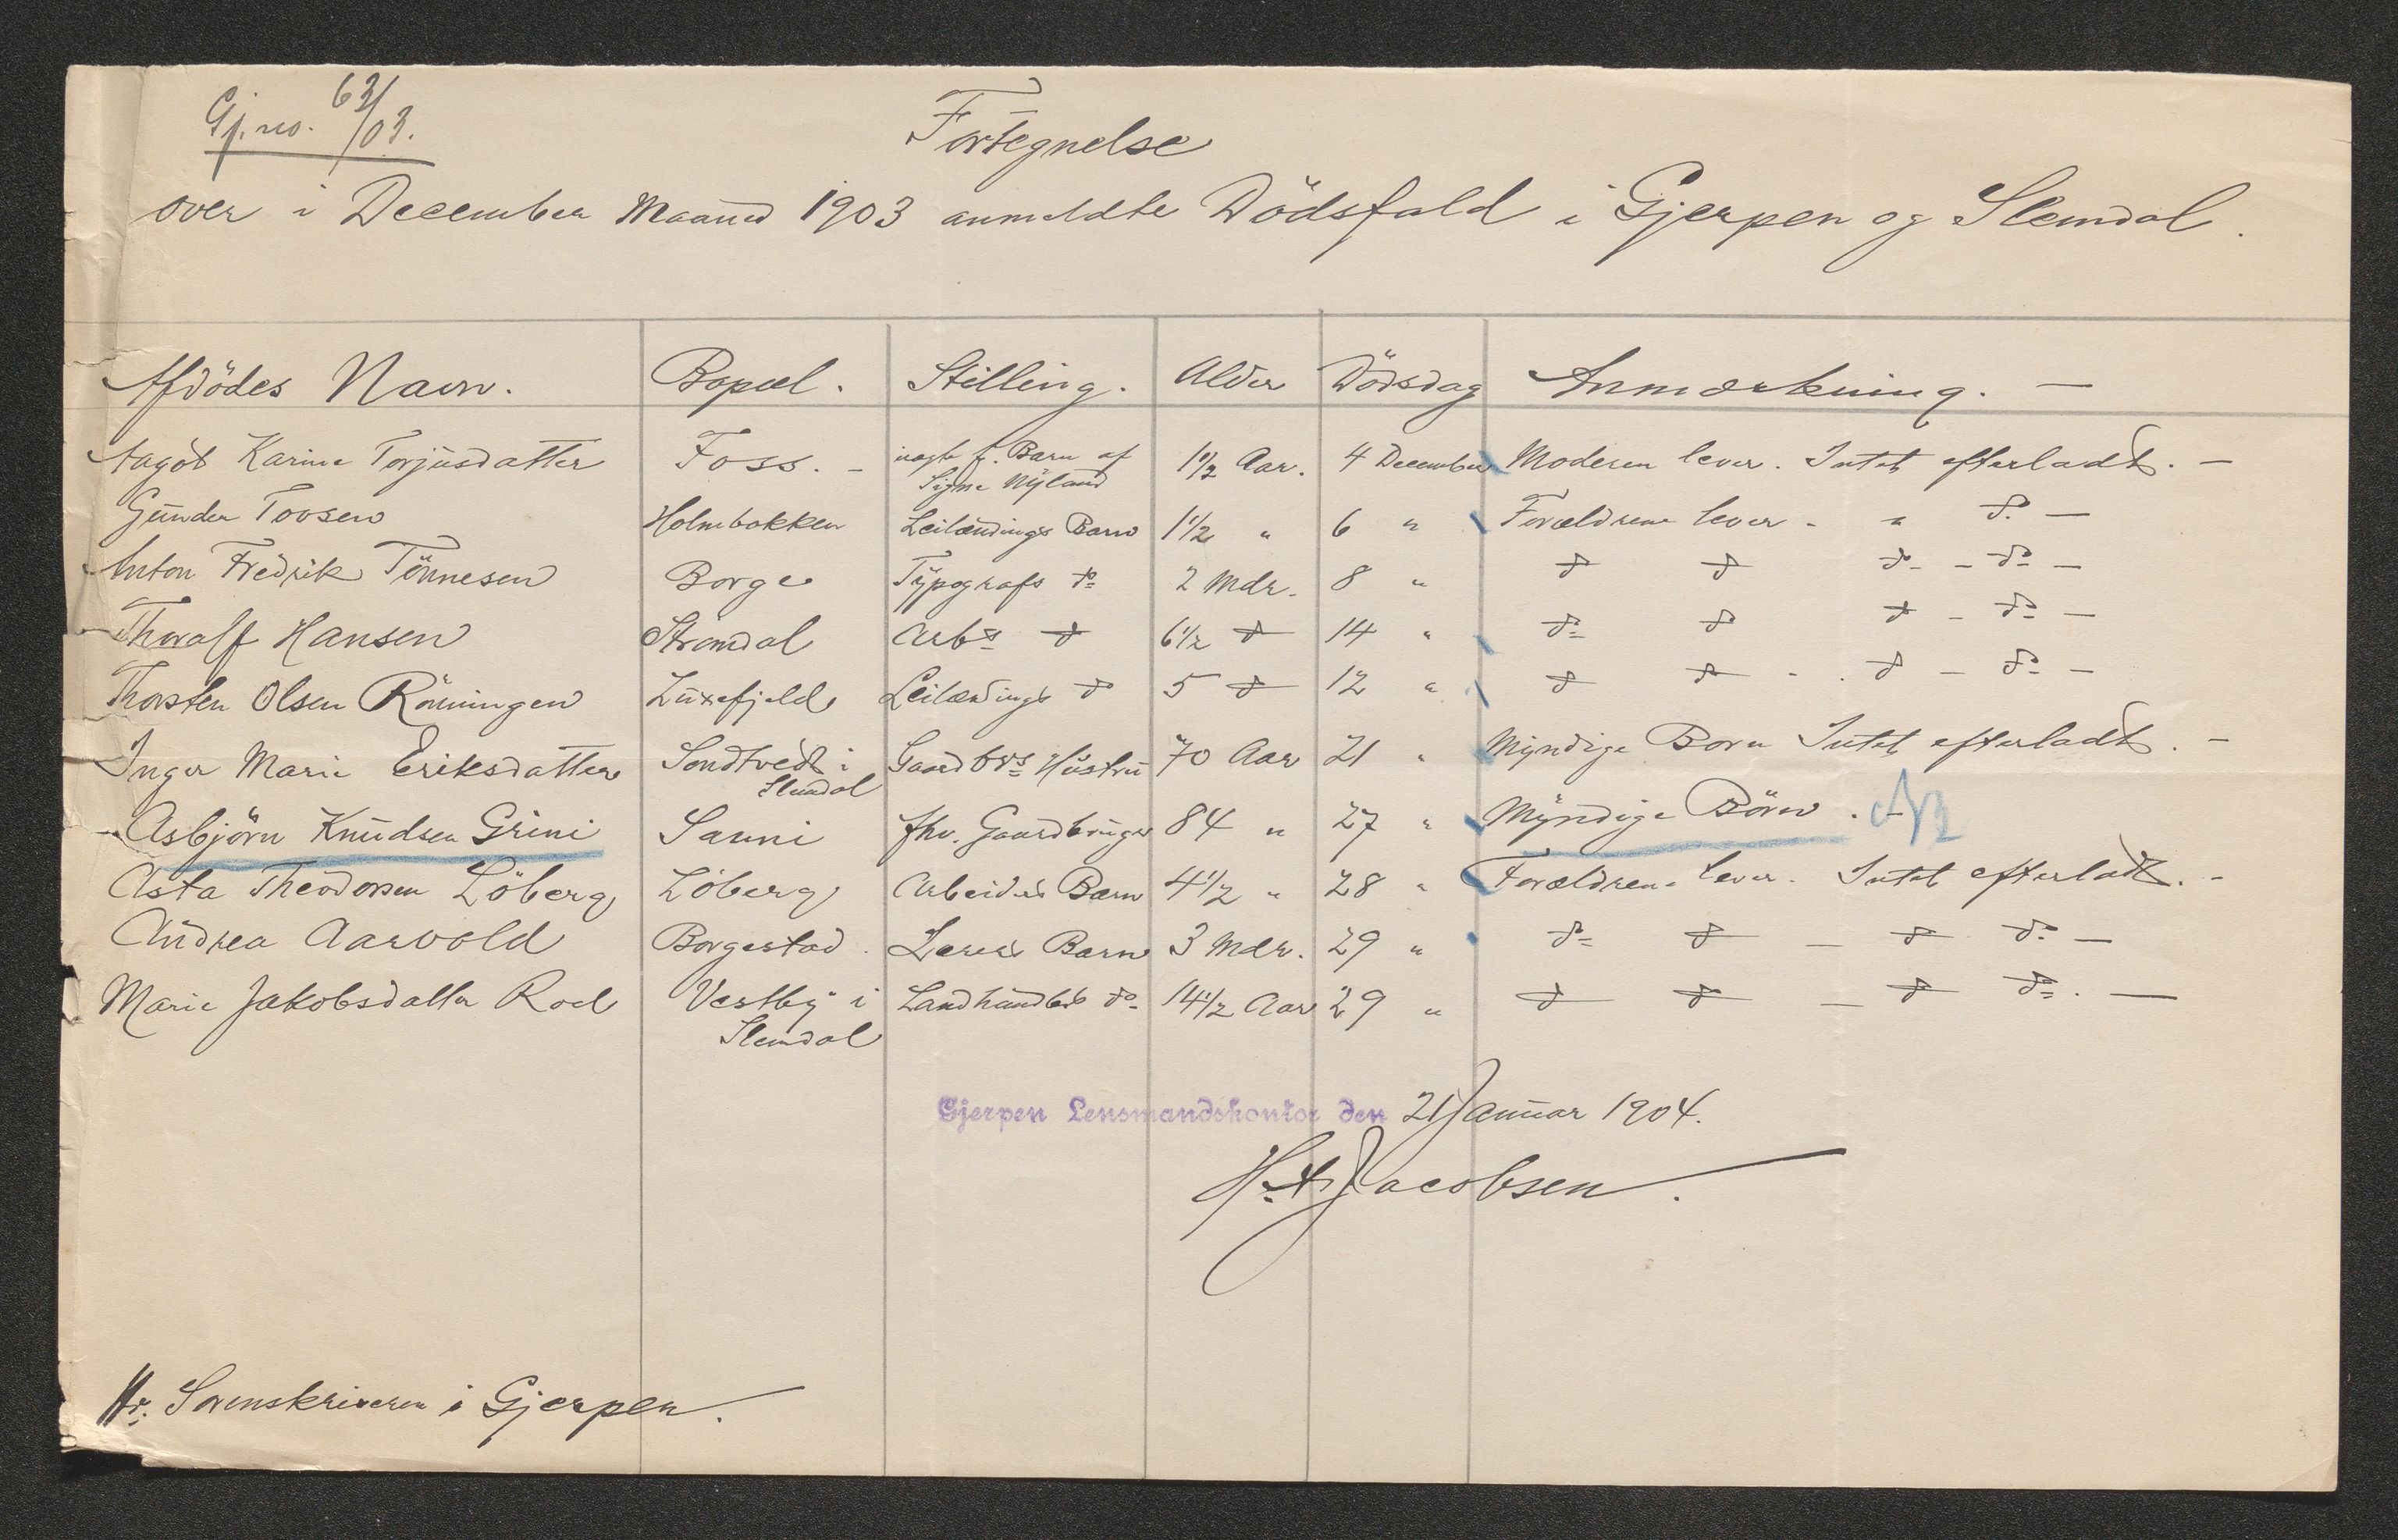 Gj. no. 63/03.
Fortegnelse
over i December Maaned 1903 anmeldte Dödsfald i Gjerpen og Slemdal.
Afdödes Navn. Bopæl. Stilling. Alder Dödsdag Anmærkning. —
Aagot Karine Torjusdatter Foss. – uægte f. Barn af Signe Nyland 1½ Aar. 4 December Moderen lever. Intet efterladt. –
Gunder Tovsen Holmbakken Leilændings Barn 1½ " 6 " Forældrene lever - " do. —
Anton Fredrik Tönnesen Borge Typografs do 2 Mdr. 8 " do do do - do —
Thoralf Hansen Stromdal Arbs do 6½ do 14 " do do do - do —
Thorsten Olsen Rönningen Luxefjeld Leilændings do 5 do 12 " do do - do - do —
Inger Marie Eriksdatter Sondtvedt i Slemdal Gaardbrs Hustru 70 Aar 21 " Myndige Born Intet efterladt. –
Asbjörn Knudsen Grini Sanni fhv. Gaardbruger 84 " 27 " Myndige Börn. –
Asta Theodorsen Löberg Löberg Arbeiders Barn 4½ " 28 " Forældrene lever. Intet efterladt. -
Andrea Aarvold Borgestad. Lærers Barn 3 Mdr. 29 " do do — do do —
Marie Jakobsdatter Roel Vestby i Slemdal Landhandlers do 14½ Aar 29 " do do — do do. —
Gjerpen Lensmandskontor den 21 Januar 1904.
H. A. Jacobsen.
Hr. Sorenskriveren i Gjerpen.